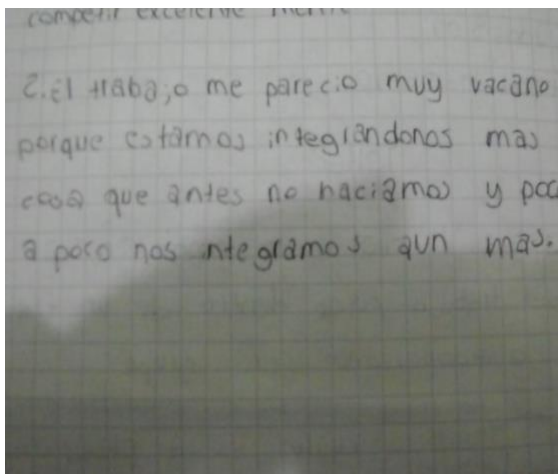 competir excelente mente
2. El trabajo me parecio muy vacano
porque estamos integrandonos mas
cosa que antes no haciamos y poc
a poco nos integramos aun mas.